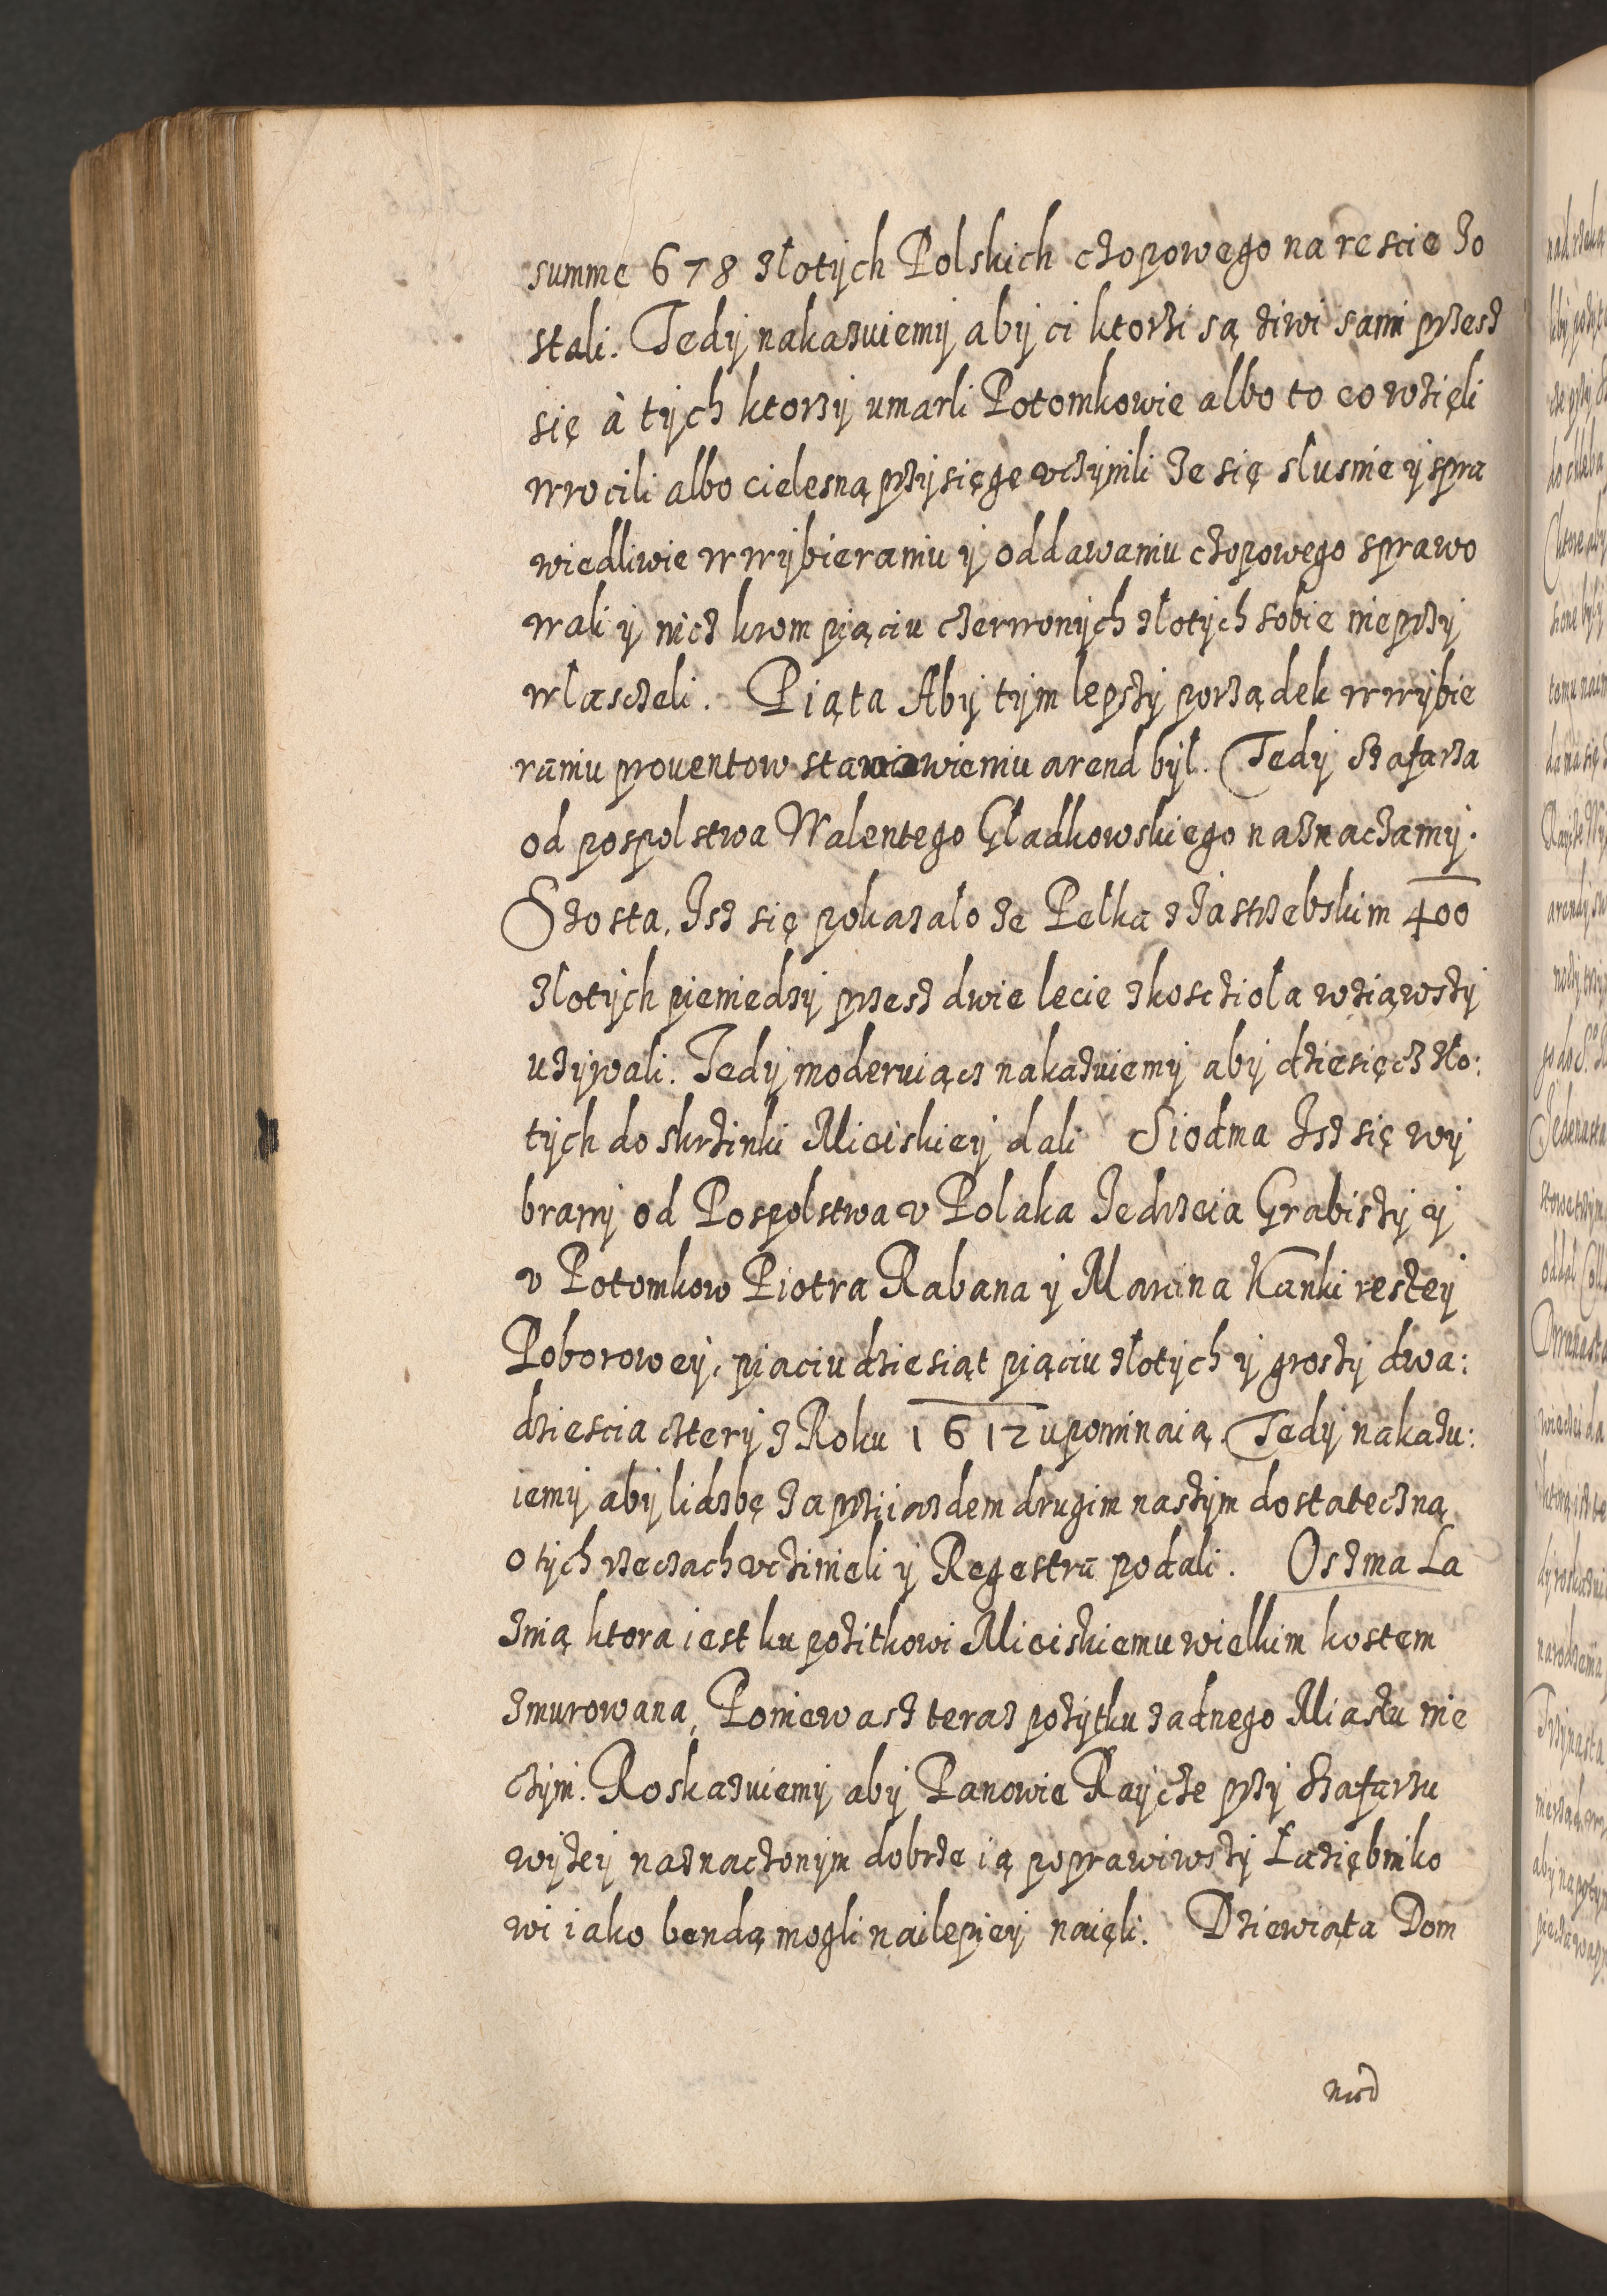 summe 678 złotych Polskich czopowego na rescie zo
stali. Tedy nakazuiemy aby ci ktorzi są ziwi sami przesz
się à tych ktorzy umarli Potomkowie albo to co wzięli
wrocili albo cielesną przysięgę vczynili ze się slusnie y spra
wiedliwie w wybieraniu y oddawaniu czopowego sprawo
wali y nicz krom piąciu czerwonych złotych sobie nieprzy
wlasczeli. Piąta Aby tym lepszy porządek w wybie
raniu prouentow stanowieniu arend był. Tedy Szafarza
od pospolstwa Walentego Gładkowskiego naznaczamy.
Szosta. Isz się pokazalo ze Pełka z Jastrzebskim 400
złotych pieniedzy przesz dwie lecie z kosciola wziąwszy
uzywali. Tedy moderuiącz nakazuiemy aby dziesięcz zło:
tych do skrzinki Mieiskiey dali Siodma Isz się wy
brany od Pospolstwa v Polaka Jedrzeia Grabiszy y
v Potomkow Piotra Rabana y Marcina Kanki reszey
Poborowey, piaciudziesiąt piąciu złotych y groszy dwa:
dziescia cztery z Roku 1612 upominaią. Tedy nakazu:
iemy aby liczbę za prziiazdem drugim naszym dostateczną
o tych rzeczach vczinieli y Regestra podali. Oszma La
znią ktora iest ku pozitkowi Mieiskiemu wielkim kosztem
zmurowana, Poniewasz teraz pożytku zadnego Miastu nie
czyni. Roskazuiemy aby Panowie Raycze przy Szafarzu
wyzey naznaczonym dobrze ią poprawiwszy Laziębniko
wi iako bendą mogli nailepiey naięli. Dziewiąta Dom
nad